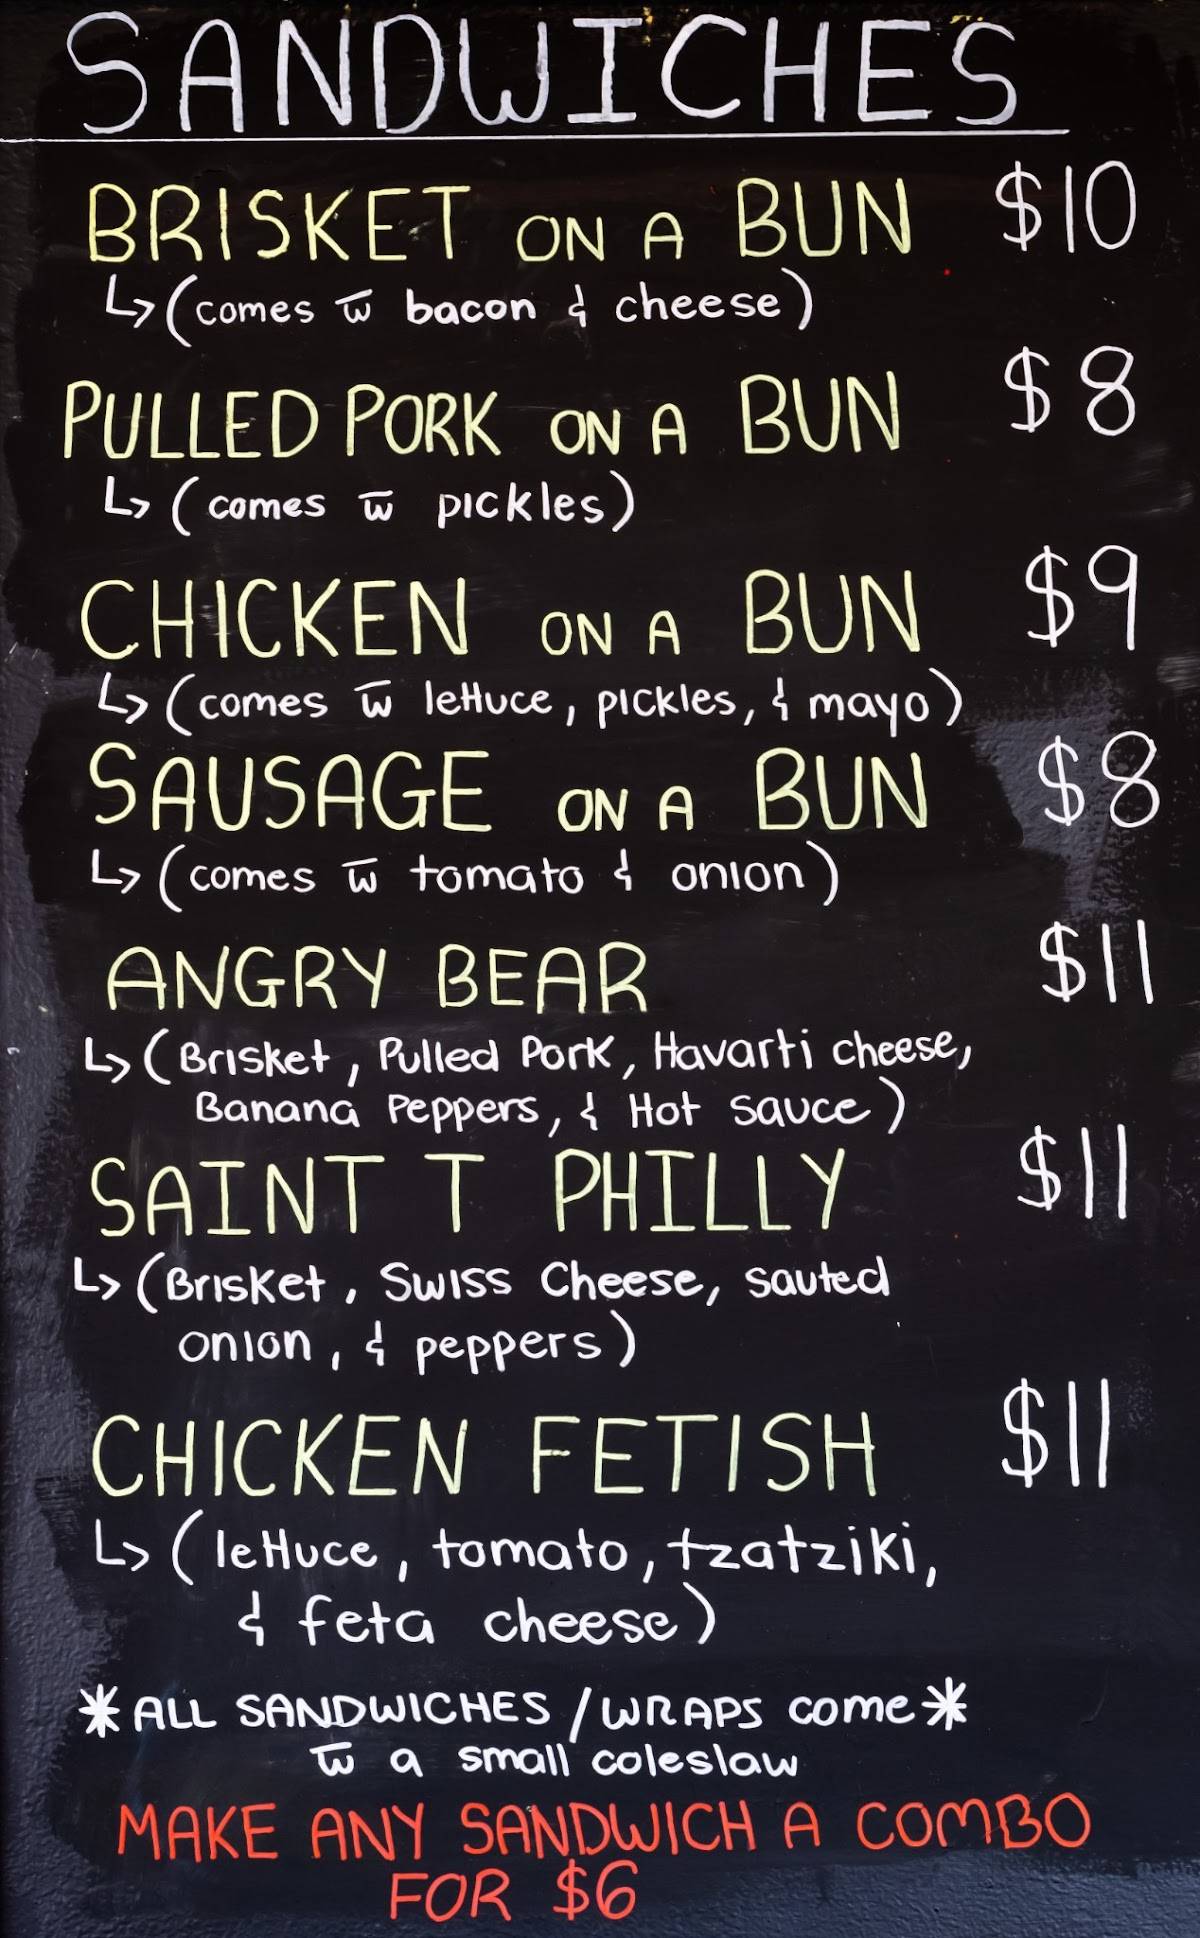 SANDWICHES
BRISKET ON A BUN $10
↳ (comes w̅ bacon & cheese)
PULLED PORK ON A BUN $8
↳ (comes w̅ pickles)
CHICKEN ON A BUN $9
↳ (comes w̅ lettuce, pickles, & mayo)
SAUSAGE ON A BUN $8
↳ (comes w̅ tomato & onion)
ANGRY BEAR $11
↳ (Brisket, Pulled Pork, Havarti cheese,
Banana Peppers, & Hot Sauce)
SAINT T PHILLY $11
↳ (Brisket, Swiss Cheese, sauted
onion, & peppers)
CHICKEN FETISH $11
↳ (lettuce, tomato, tzatziki,
& feta cheese)
*ALL SANDWICHES/WRAPS come*
w̅ a small coleslaw
MAKE ANY SANDWICH A COMBO
FOR $6